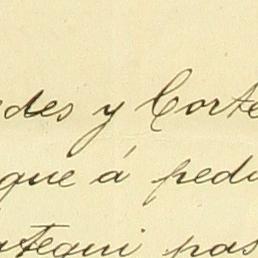 des y Corte
que á pedi
ategui pas